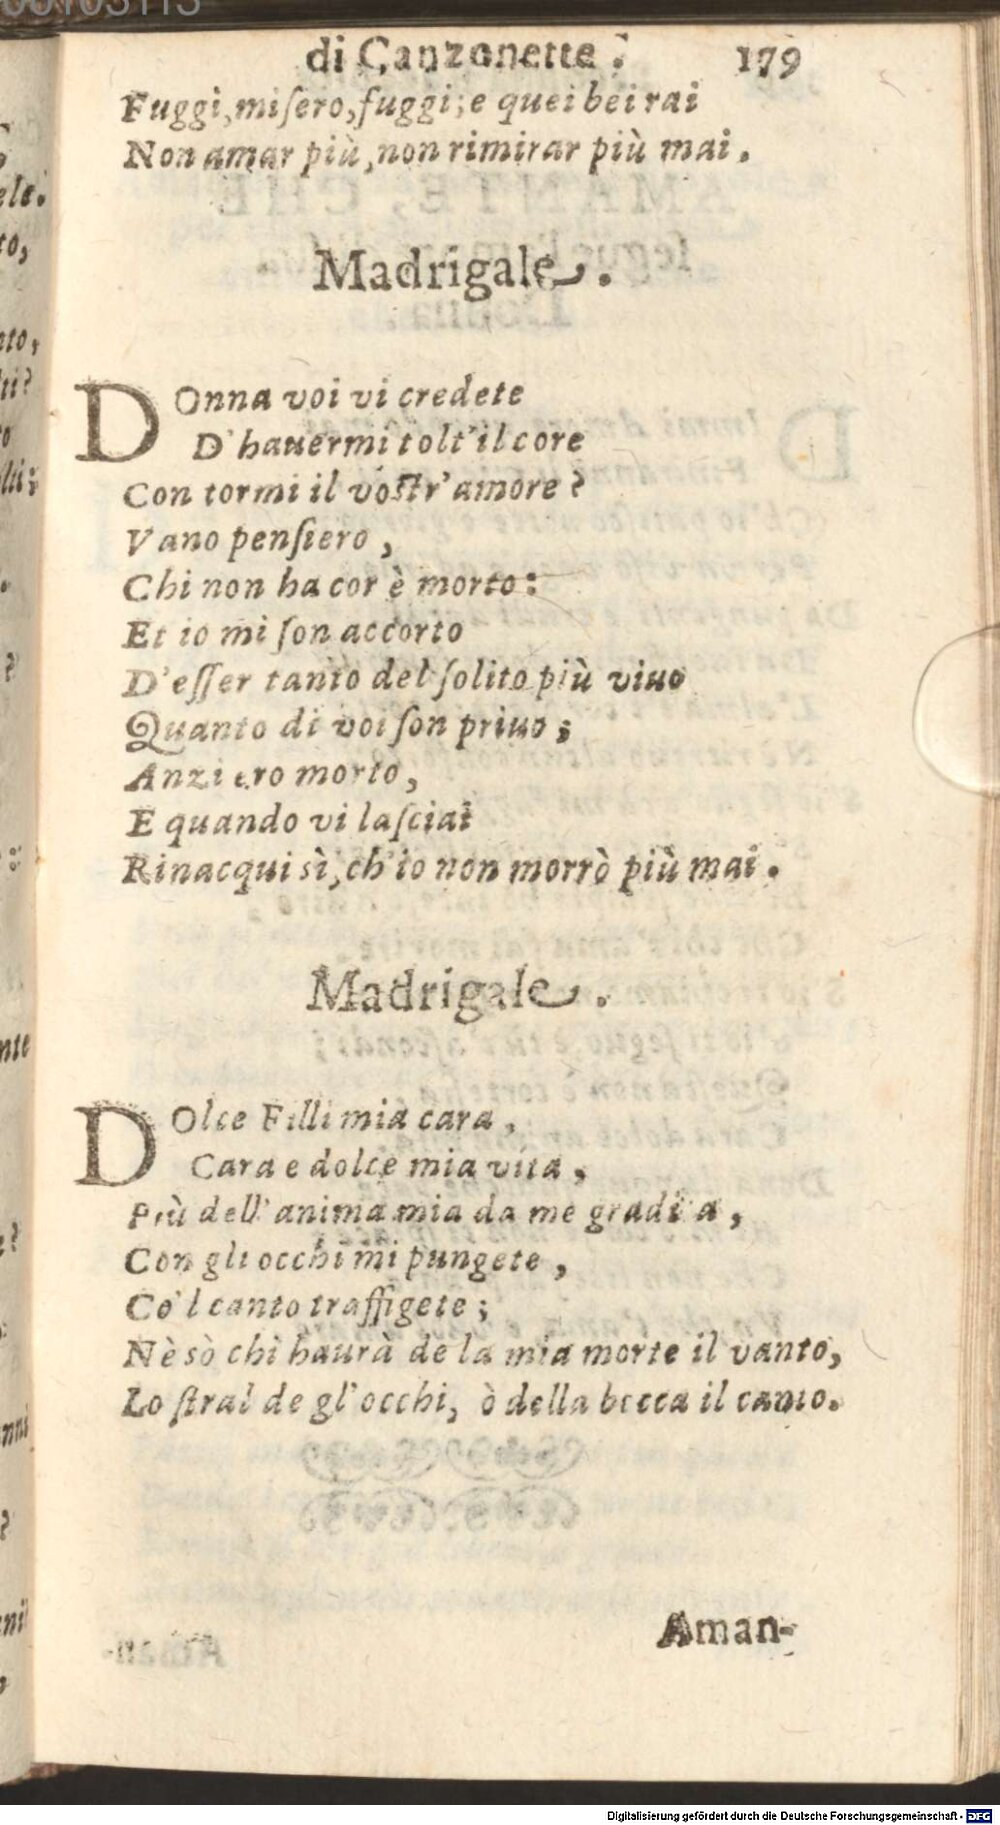 di Canzonette. 179
Fuggi, miſero, fuggi; e quei bei rai
Non amar più, non rimirar più mai.
Madrigale.
DOnna voi vi credete
D'hauermi tolt'il core
Con tormi il voſtr'amore?
Vano penſiero,
Chi non ha cor è morto:
Et io mi ſon accorto
D'eſſer tanto del ſolito più viuo
Quanto di voi ſon priuo;
Anzi ero morto,
E quando vi laſciai
Rinacqui sì, ch'io non morrò più mai.
Madrigale.
DOlce Filli mia cara,
Cara e dolce mia vita,
Più dell'anima mia da me gradita,
Con gli occhi mi pungete,
Co'l canto traffigete;
Nè sò chi haurà de la mia morte il vanto,
Lo ſtral de gl'occhi, ò della bocca il canto.
Aman-
Digitalisierung gefördert durch die Deutsche Forschungsgemeinschaft - DFG